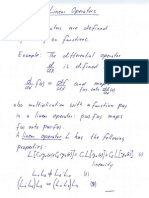 Linear Operators
are defined
as functions.
Example: The differential operator
d/dx is defined
d/dx f(x) = df/dx and maps
f(x) onto
also multiplication with a function p(x)
is a linear operator: p(x) f(x) maps
f(x) onto p(x) f(x).
A linear operator L has the following
properties:
L[C₁y₁(x)+C₂y₂(x)] = C₁L[y₁(x)]+C₂L[y₂(x)] (i)
linearity
L₁L₂ ≠ L₂L₁ (ii)
(L₁L₂)L₃ = L₁(L₂L₃) (iii)